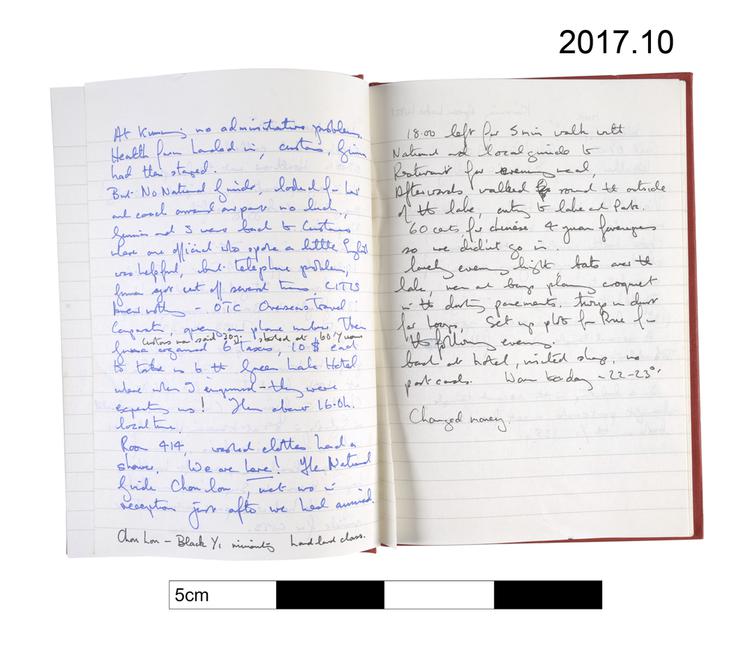 2017.10
At Kunming no administrative problems.
Health form handed in, customs, forms
had then stamped.
But No National Guide, looked for her
and coach around airport no luck,
and I were back to Customs
where one official who spoke a little English
was helpful, but telephone problem,
got cut off several times CITS
knew nothing - OTC Overseas Travel
Corporation, query on phone number. Then
customs man said 20 started at 60 Yuan
organised 6 taxis, 10 $ each
to take us to the Green Lake Hotel
where when I enquired - they were
expecting us! Then about 16.0h.
local time,
Room 414, washed clothes had a
shower. We are here! The National
Guide Chou Lou, met us in
reception just after we had arrived.
Chou Lou - Black Yi minority landlord class.
18.00 left for 5 min walk with
National and local guides to
Restaurant for evening meal,
Afterwards walked round the outside
of the lake, entry to lake and Park.
60 cents for chinese 4 yuan foreigners
so we didn't go in.
lovely evening light bats over the
lake, men and boys playing croquet
in the dusty pavements, in dust
for hoops. Set up plots for for
the following evening.
back at hotel, visited shop, no
post cards. Warm today - 22-23°.
Changed money.
5cm